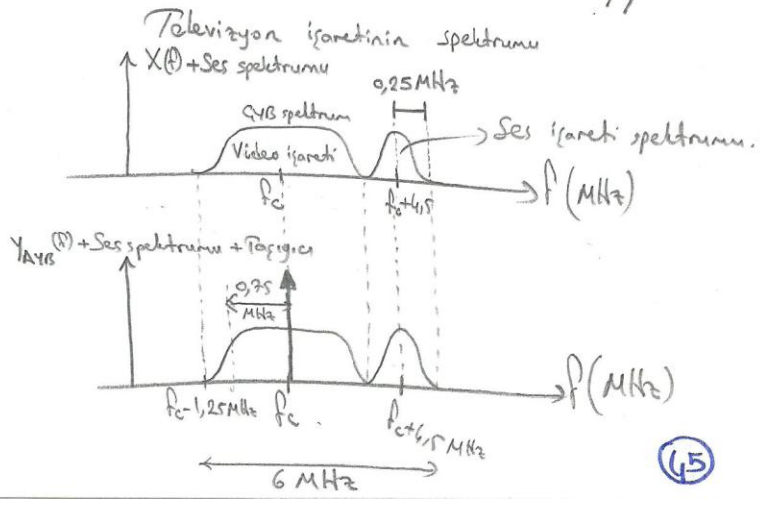 Televizyon işaretinin spektrumu
X(f) + Ses spektrumu
0,25 MHz
GYB spektrum
Video işareti
Ses işareti spektrumu.
fc
fc+4,5
f (MHz)
YAYB(f) + Ses spektrumu + Taşıyıcı
0,75
MHz
f (MHz)
fc-1,25MHz
fc.
fc+4,5 MHz
6 MHz
45